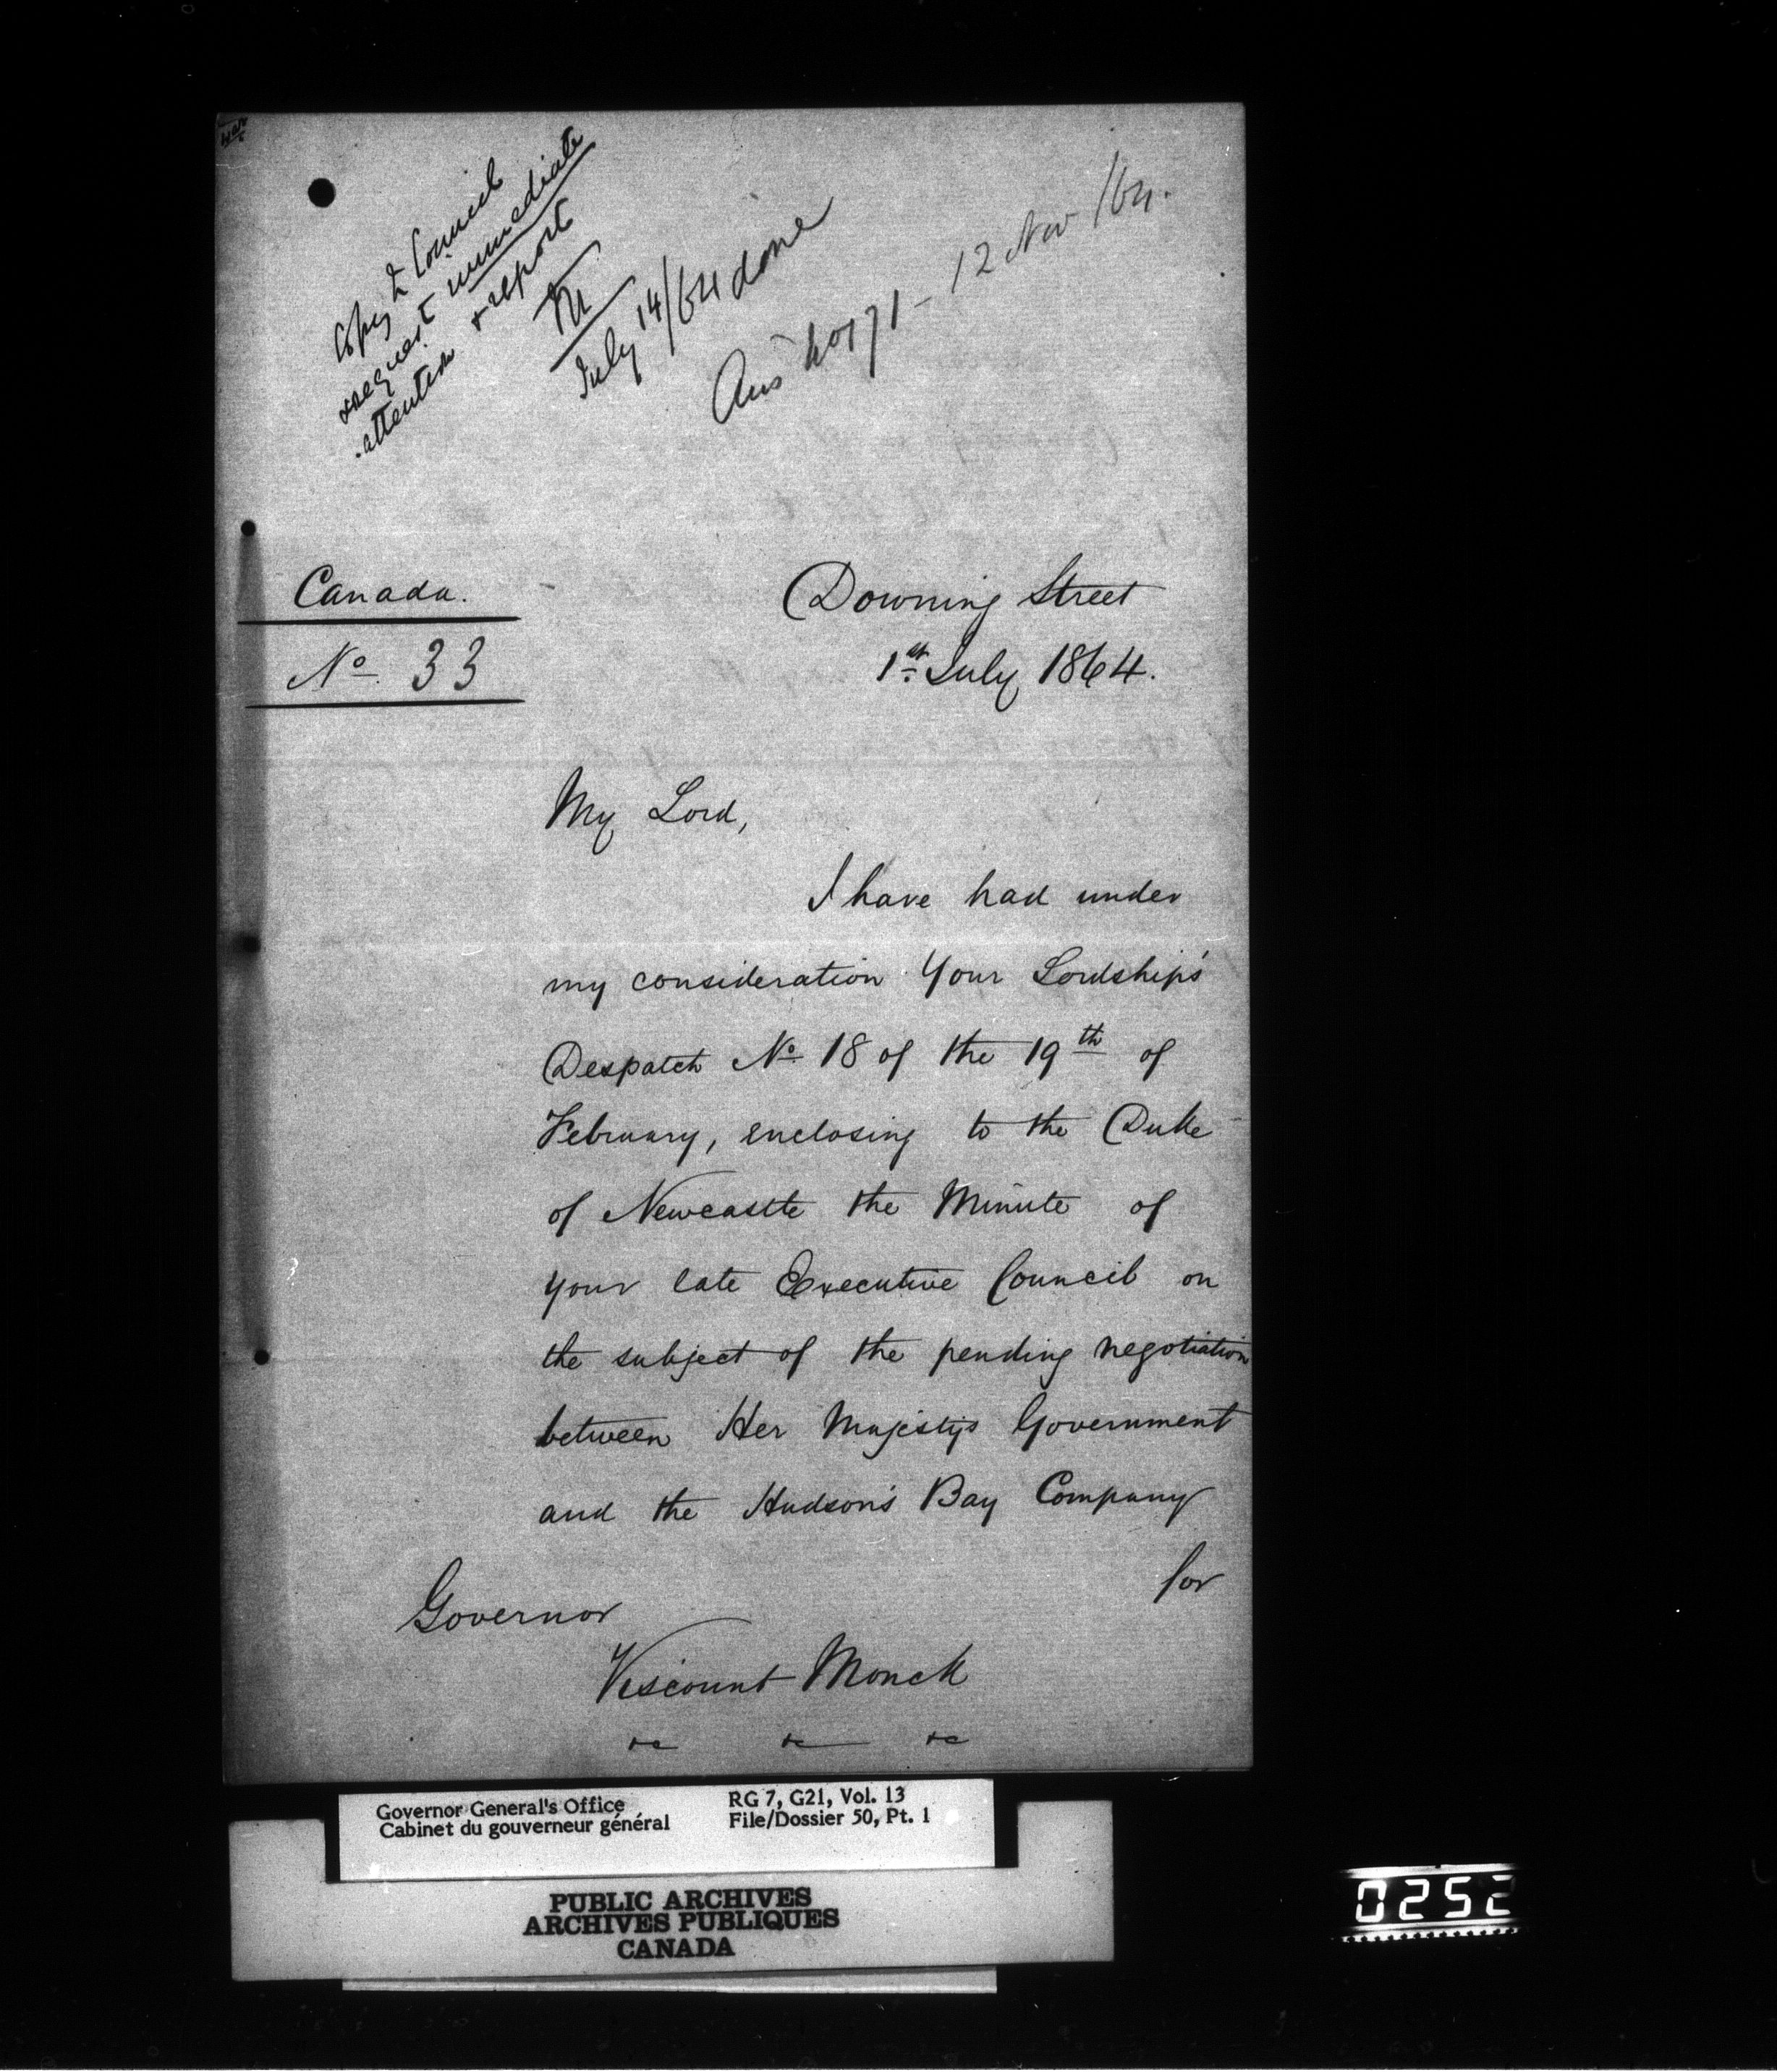 Copy to Council
& request immediate
attention & report
M
July 14/64 done
Ans No 171 - 12 Nov /64.
Canada.
No. 33
Downing Street
1st. July 1864.
My Lord,
I have had under
my consideration Your Lordship's
Despatch No. 18 of the 19th of
February, enclosing to the Duke
of Newcastle the Minute of
your late Executive Council on
the subject of the pending negotiation
between Her Majesty's Government
and the Hudson's Bay Company
for
Governor
Viscount Monck
&c &c &c
Governor General's Office
Cabinet du gouverneur général
RG 7, G21, Vol. 13
File/Dossier 50, Pt. 1
PUBLIC ARCHIVES
ARCHIVES PUBLIQUES
CANADA
0252